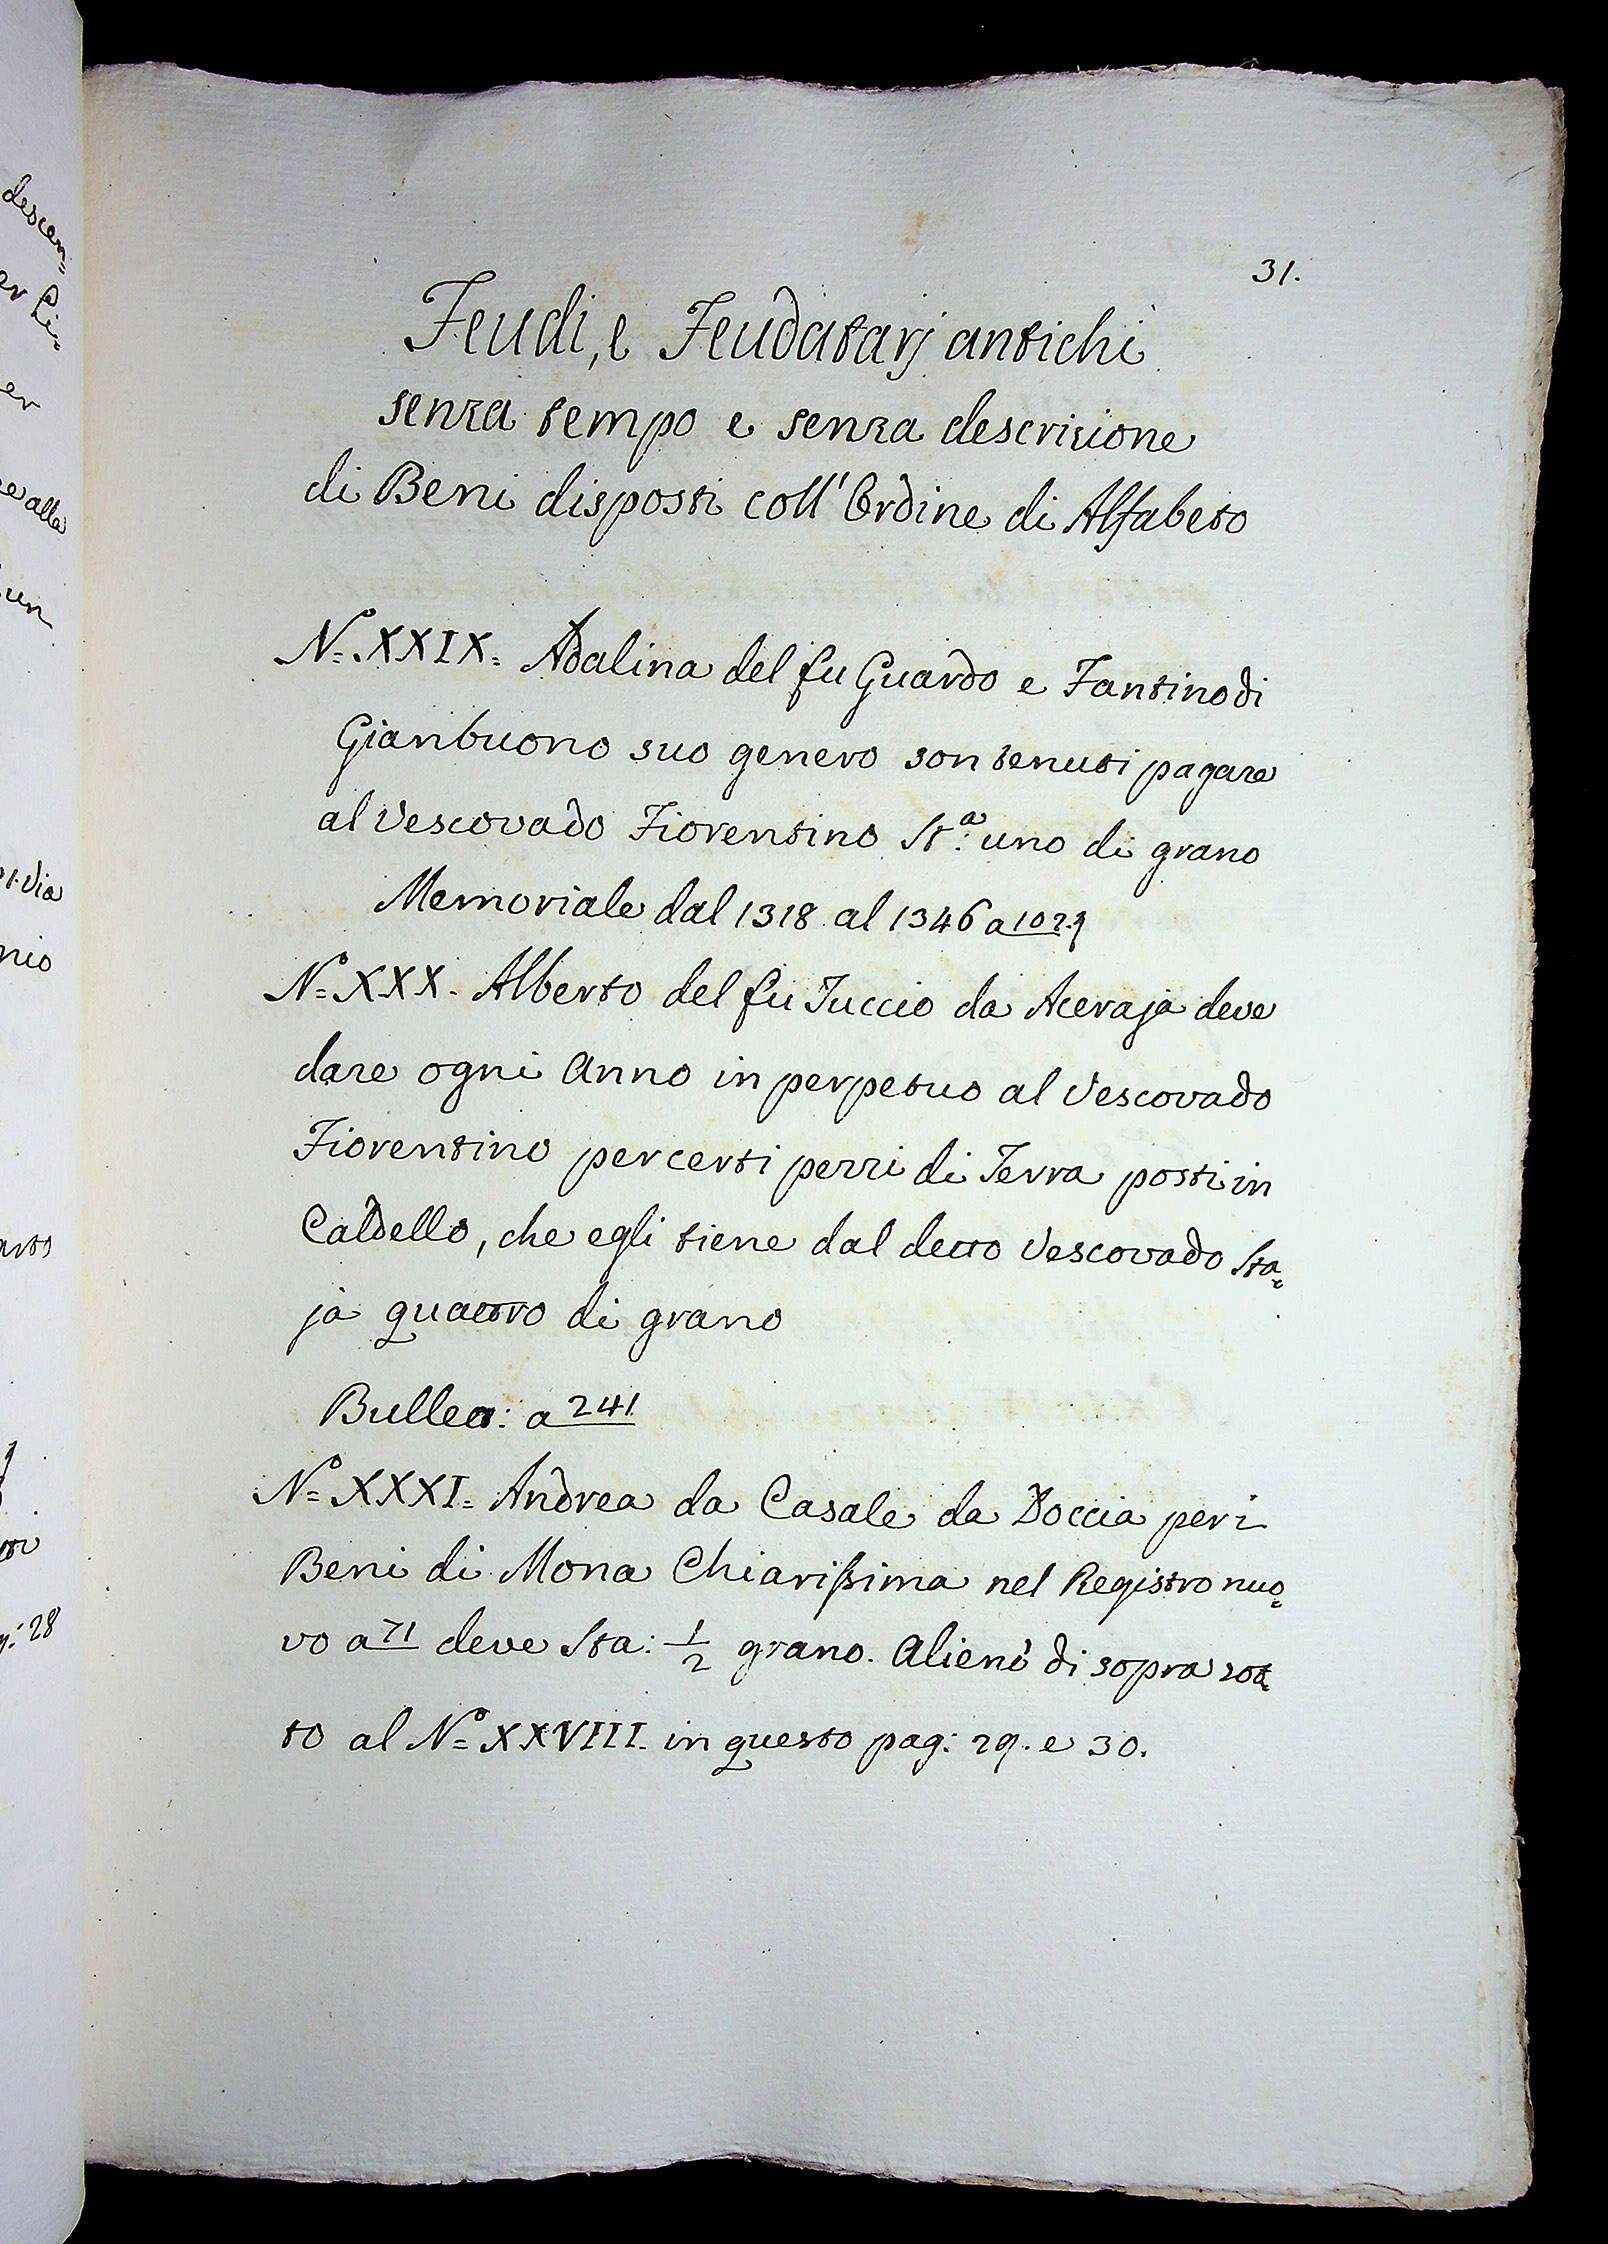 31.
Feudi, e Feudatarj antichi
senza tempo e senza descrizione
di Beni disposti coll' Ordine di Alfabeto
Nº. XXIX. Adalina del fu Guardo e Fantino di
Gianbuono suo genero son tenuti pagare
al Vescovado Fiorentino Stª: uno di grano
Memoriale dal 1318 al 1346 a 102.
Nº XXX. Alberto del fu Tuccio da Aceraja deve
dare ogni Anno in perpetuo al Vescovado
Fiorentino per certi pezzi di Terra posti in
Caldello, che egli tiene dal detto Vescovado Sta=
ja quattro di grano
a 241
Nº XXXI. Andrea da Casale da Doccia per i
Beni di Mona Chiarissima nel Registro nuo=
vo a 71 deve Sta: 1/2 grano. Alienò di sopra
to al Nº XXVIII. in questo pag: 29. e 30.
descen=
er
e alla
un
Via
nio
28